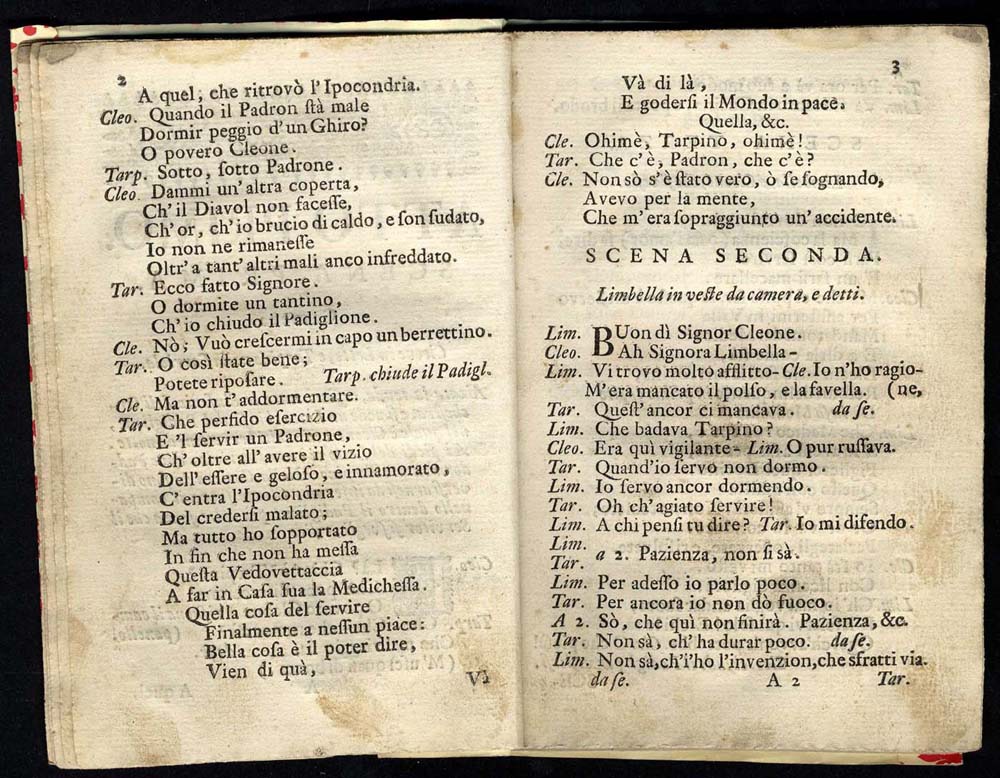 2
A quel, che ritrovò l'Ipocondria.
Cleo. Quando il Padron ſtà male
Dormir peggio d'un Ghiro?
O povero Cleone.
Tarp. Sotto, ſotto Padrone.
Cleo. Dammi un'altra coperta,
Ch'il Diavol non faceſſe,
Ch'or, ch'io brucio di caldo, e ſon ſudato,
Io non ne rimaneſſe
Oltr'a tant'altri mali anco infreddato.
Tar. Ecco fatto Signore.
O dormite un tantino,
Ch'io chiudo il Padiglione.
Cle. Nò; Vuò creſcermi in capo un berrettino.
Tar. O così ſtate bene;
Potete ripoſare. Tarp. chiude il Padigl.
Cle. Ma non t'addormentare.
Tar. Che perfido eſercizio
E 'l ſervir un Padrone,
Ch'oltre all'avere il vizio
Dell'eſſere e geloſo, e innamorato,
C'entra l'Ipocondria
Del crederſi malato;
Ma tutto ho ſopportato
In fin che non ha meſſa
Queſta Vedovettaccia
A far in Caſa ſua la Medicheſſa.
Quella coſa del ſervire
Finalmente a neſſun piace:
Bella coſa è il poter dire,
Vien di quà,
Và
3
Và di là,
E goderſi il Mondo in pace.
Quella, &c.
Cle. Ohimè, Tarpino, ohimè!
Tar. Che c'è, Padron, che c'è?
Cle. Non sò s'è ſtato vero, ò ſe ſognando,
Avevo per la mente,
Che m'era ſopraggiunto un'accidente.
SCENA SECONDA.
Limbella in veſte da camera, e detti.
Lim. BUon dì Signor Cleone.
Cleo. Ah Signora Limbella-
Lim. Vi trovo molto afflitto- Cle. Io n'ho ragio-
M'era mancato il polſo, e la favella. (ne,
Tar. Queſt'ancor ci mancava. da ſe.
Lim. Che badava Tarpino?
Cleo. Era quì vigilante- Lim. O pur ruſſava.
Tar. Quand'io ſervo non dormo.
Lim. Io ſervo ancor dormendo.
Tar. Oh ch'agiato ſervire!
Lim. A chi penſi tu dire? Tar. Io mi difendo.
Lim.
Tar. a 2. Pazienza, non ſi sà.
Lim. Per adeſſo io parlo poco.
Tar. Per ancora io non dò fuoco.
A 2. Sò, che quì non finirà. Pazienza, &c.
Tar. Non sà, ch'ha durar poco. da ſe.
Lim. Non sà, ch'i'ho l'invenzion, che sfratti via.
da ſe. A 2 Tar.